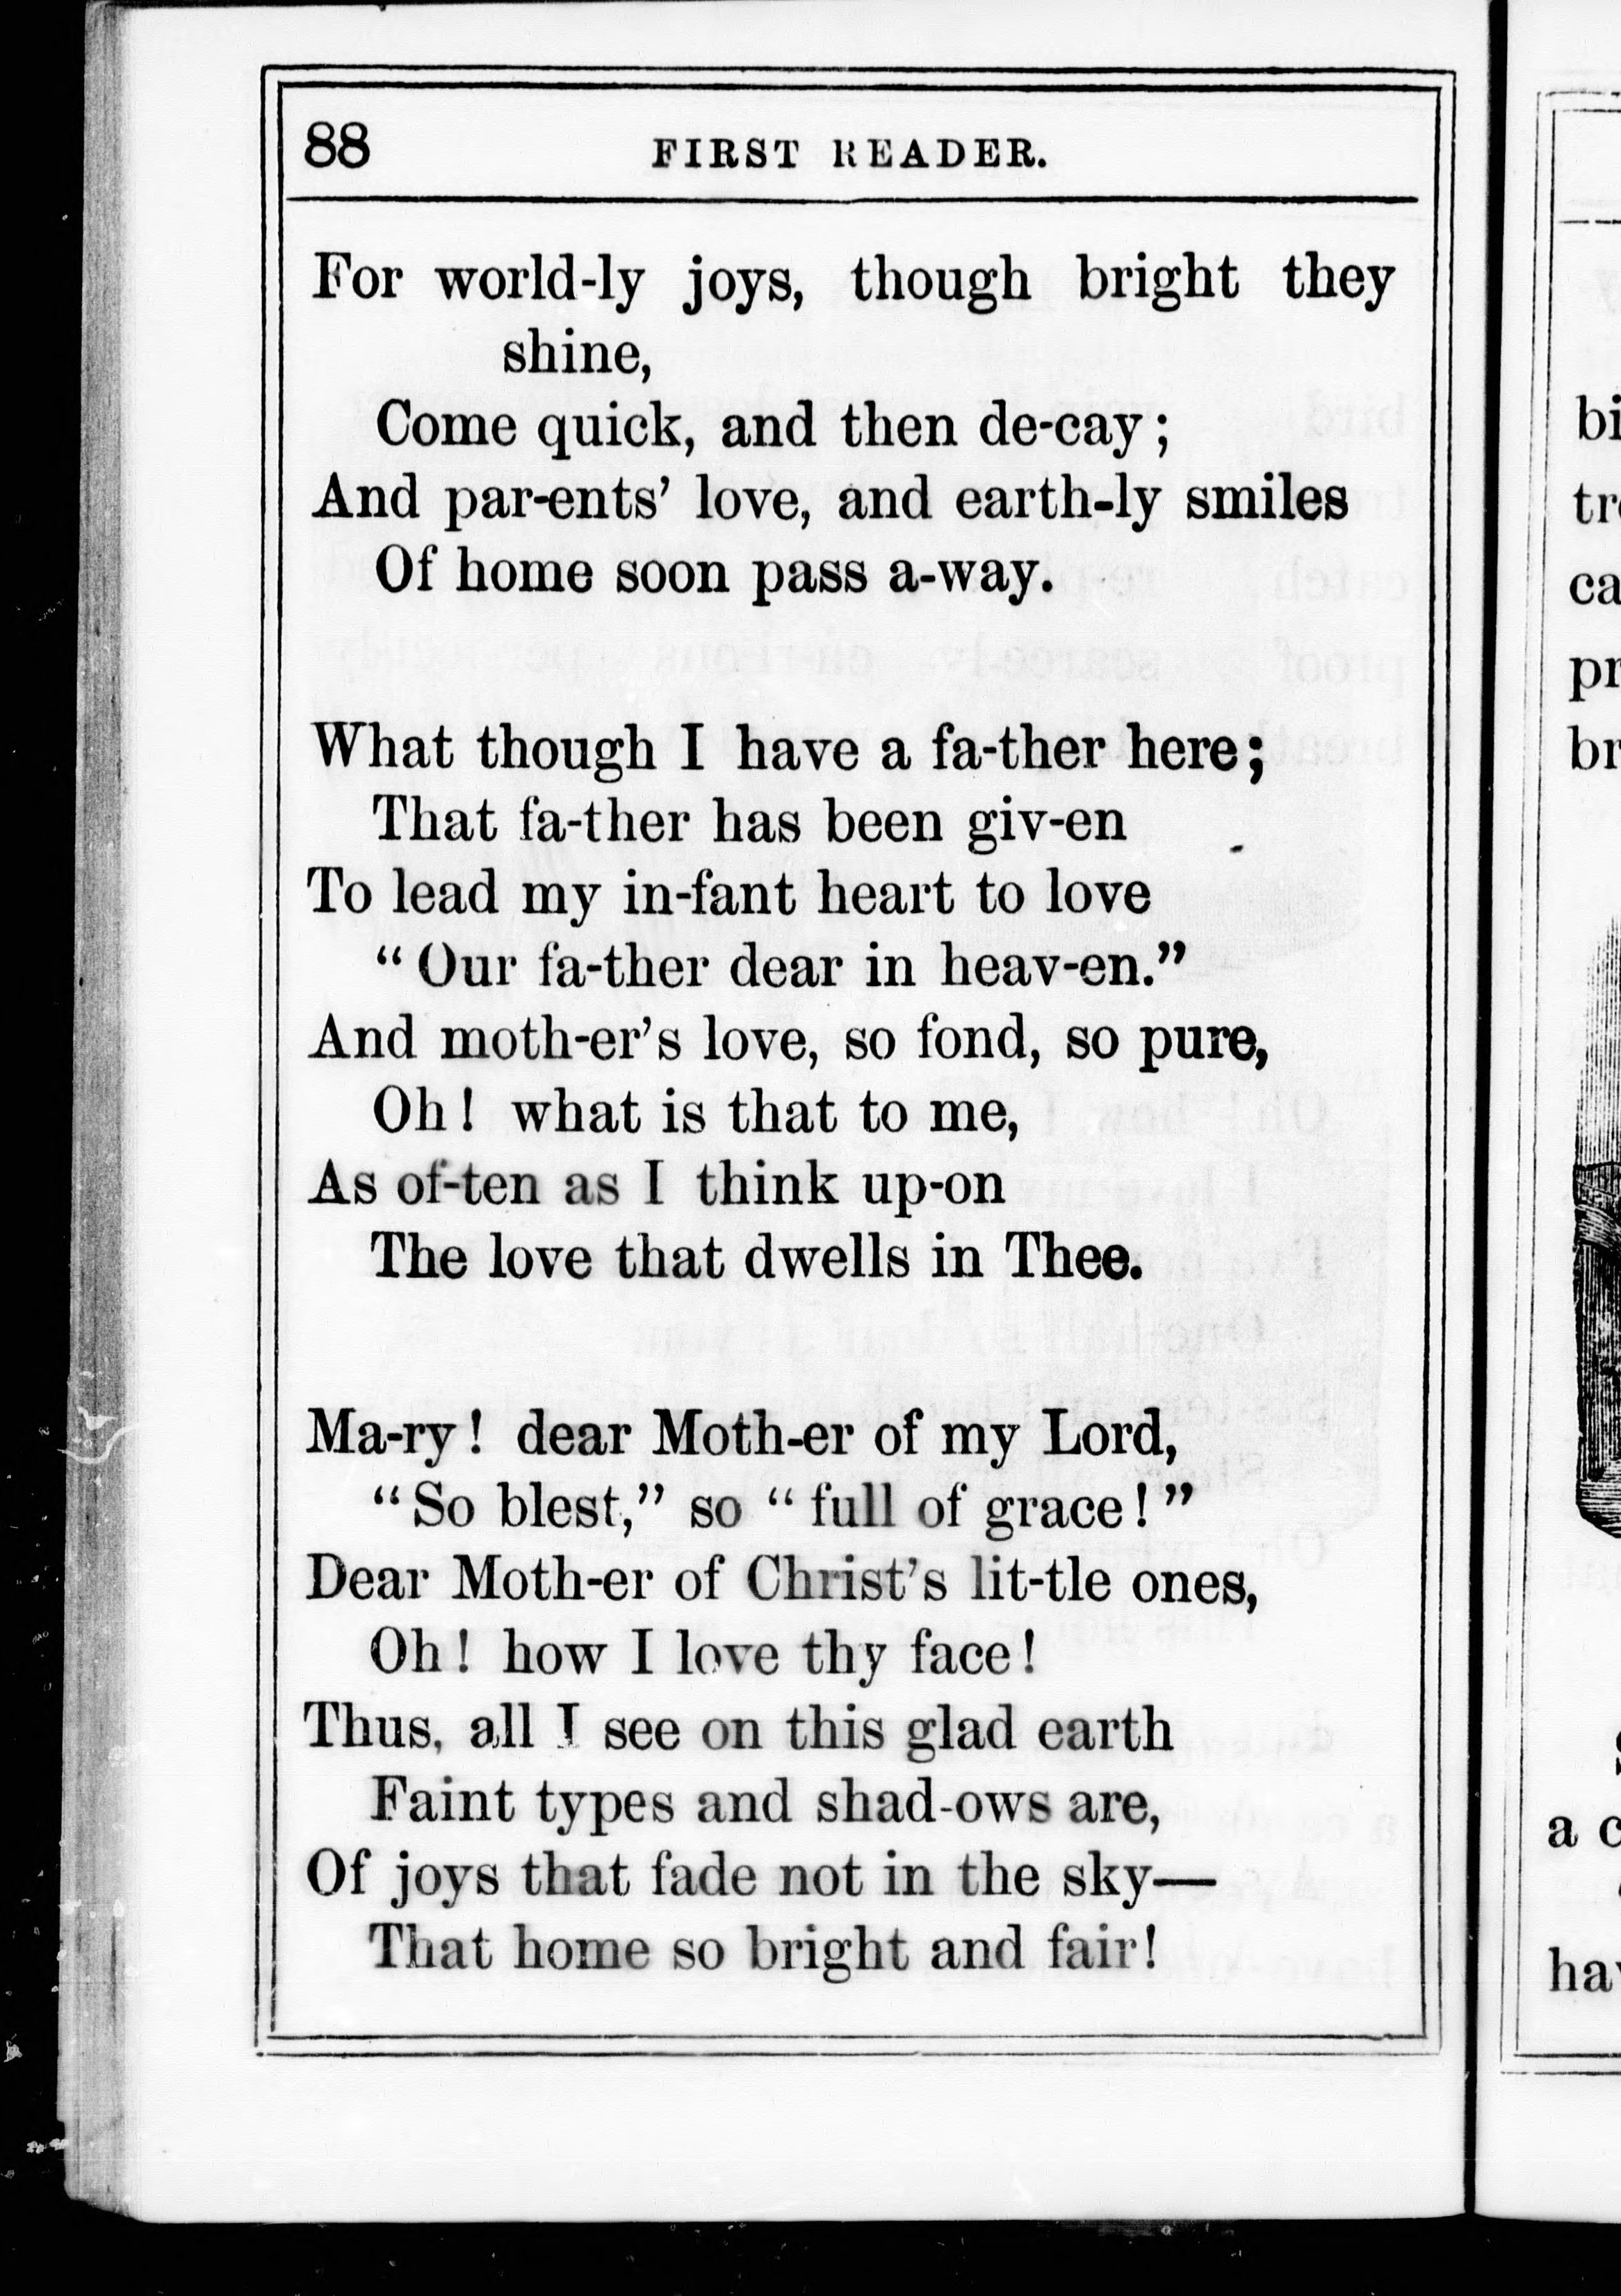 88 FIRST READER.
For world-ly joys, though bright they
shine,
Come quick, and then de-cay;
And par-ents' love, and earth-ly smiles
Of home soon pass a-way.
What though I have a fa-ther here;
That fa-ther has been giv-en
To lead my in-fant heart to love
"Our fa-ther dear in heav-en."
And moth-er's love, so fond, so pure,
Oh! what is that to me,
As of-ten as I think up-on
The love that dwells in Thee.
Ma-ry! dear Moth-er of my Lord,
"So blest," so "full of grace!"
Dear Moth-er of Christ's lit-tle ones,
Oh! how I love thy face!
Thus, all I see on this glad earth
Faint types and shad-ows are,
Of joys that fade not in the sky—
That home so bright and fair!
bi
tr
ca
pr
br
a c
ha